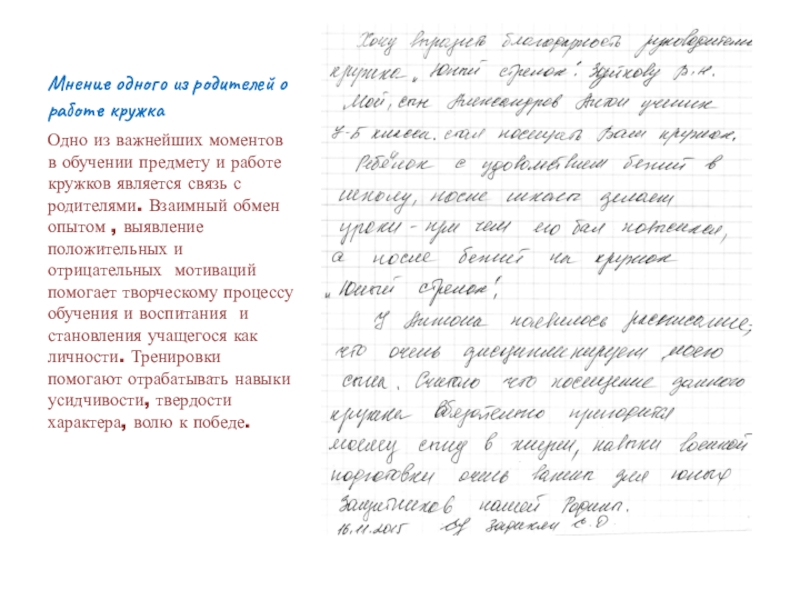 Мнение одного из родителей о
работе кружка
Одно из важнейших моментов
в обучении предмету и работе
кружков является связь с
родителями. Взаимный обмен
опытом , выявление
положительных и
отрицательных мотиваций
помогает творческому процессу
обучения и воспитания и
становления учащегося как
личности. Тренировки
помогают отрабатывать навыки
усидчивости, твердости
характера, волю к победе.
Хочу выразить благодарность руководителю
кружка „Юный стрелок". В.Н.
Мой, сын Александров Антон ученик
7-Б класса. стал посещать Ваш кружок.
Ребёнок с удовольствием бежит в
школу, после школы делает
уроки - при чем его бал повысился,
а после бежит на кружок
„Юный стрелок",
У Антона появилось расписание,
что очень дисциплинирует моего
сына. Считаю что посещение данного
кружка обязательно пригодится
моему сыну в жизни, навыки военной
подготовки очень важны для юных
Защитников нашей Родины.
16.11.2015 С.О.